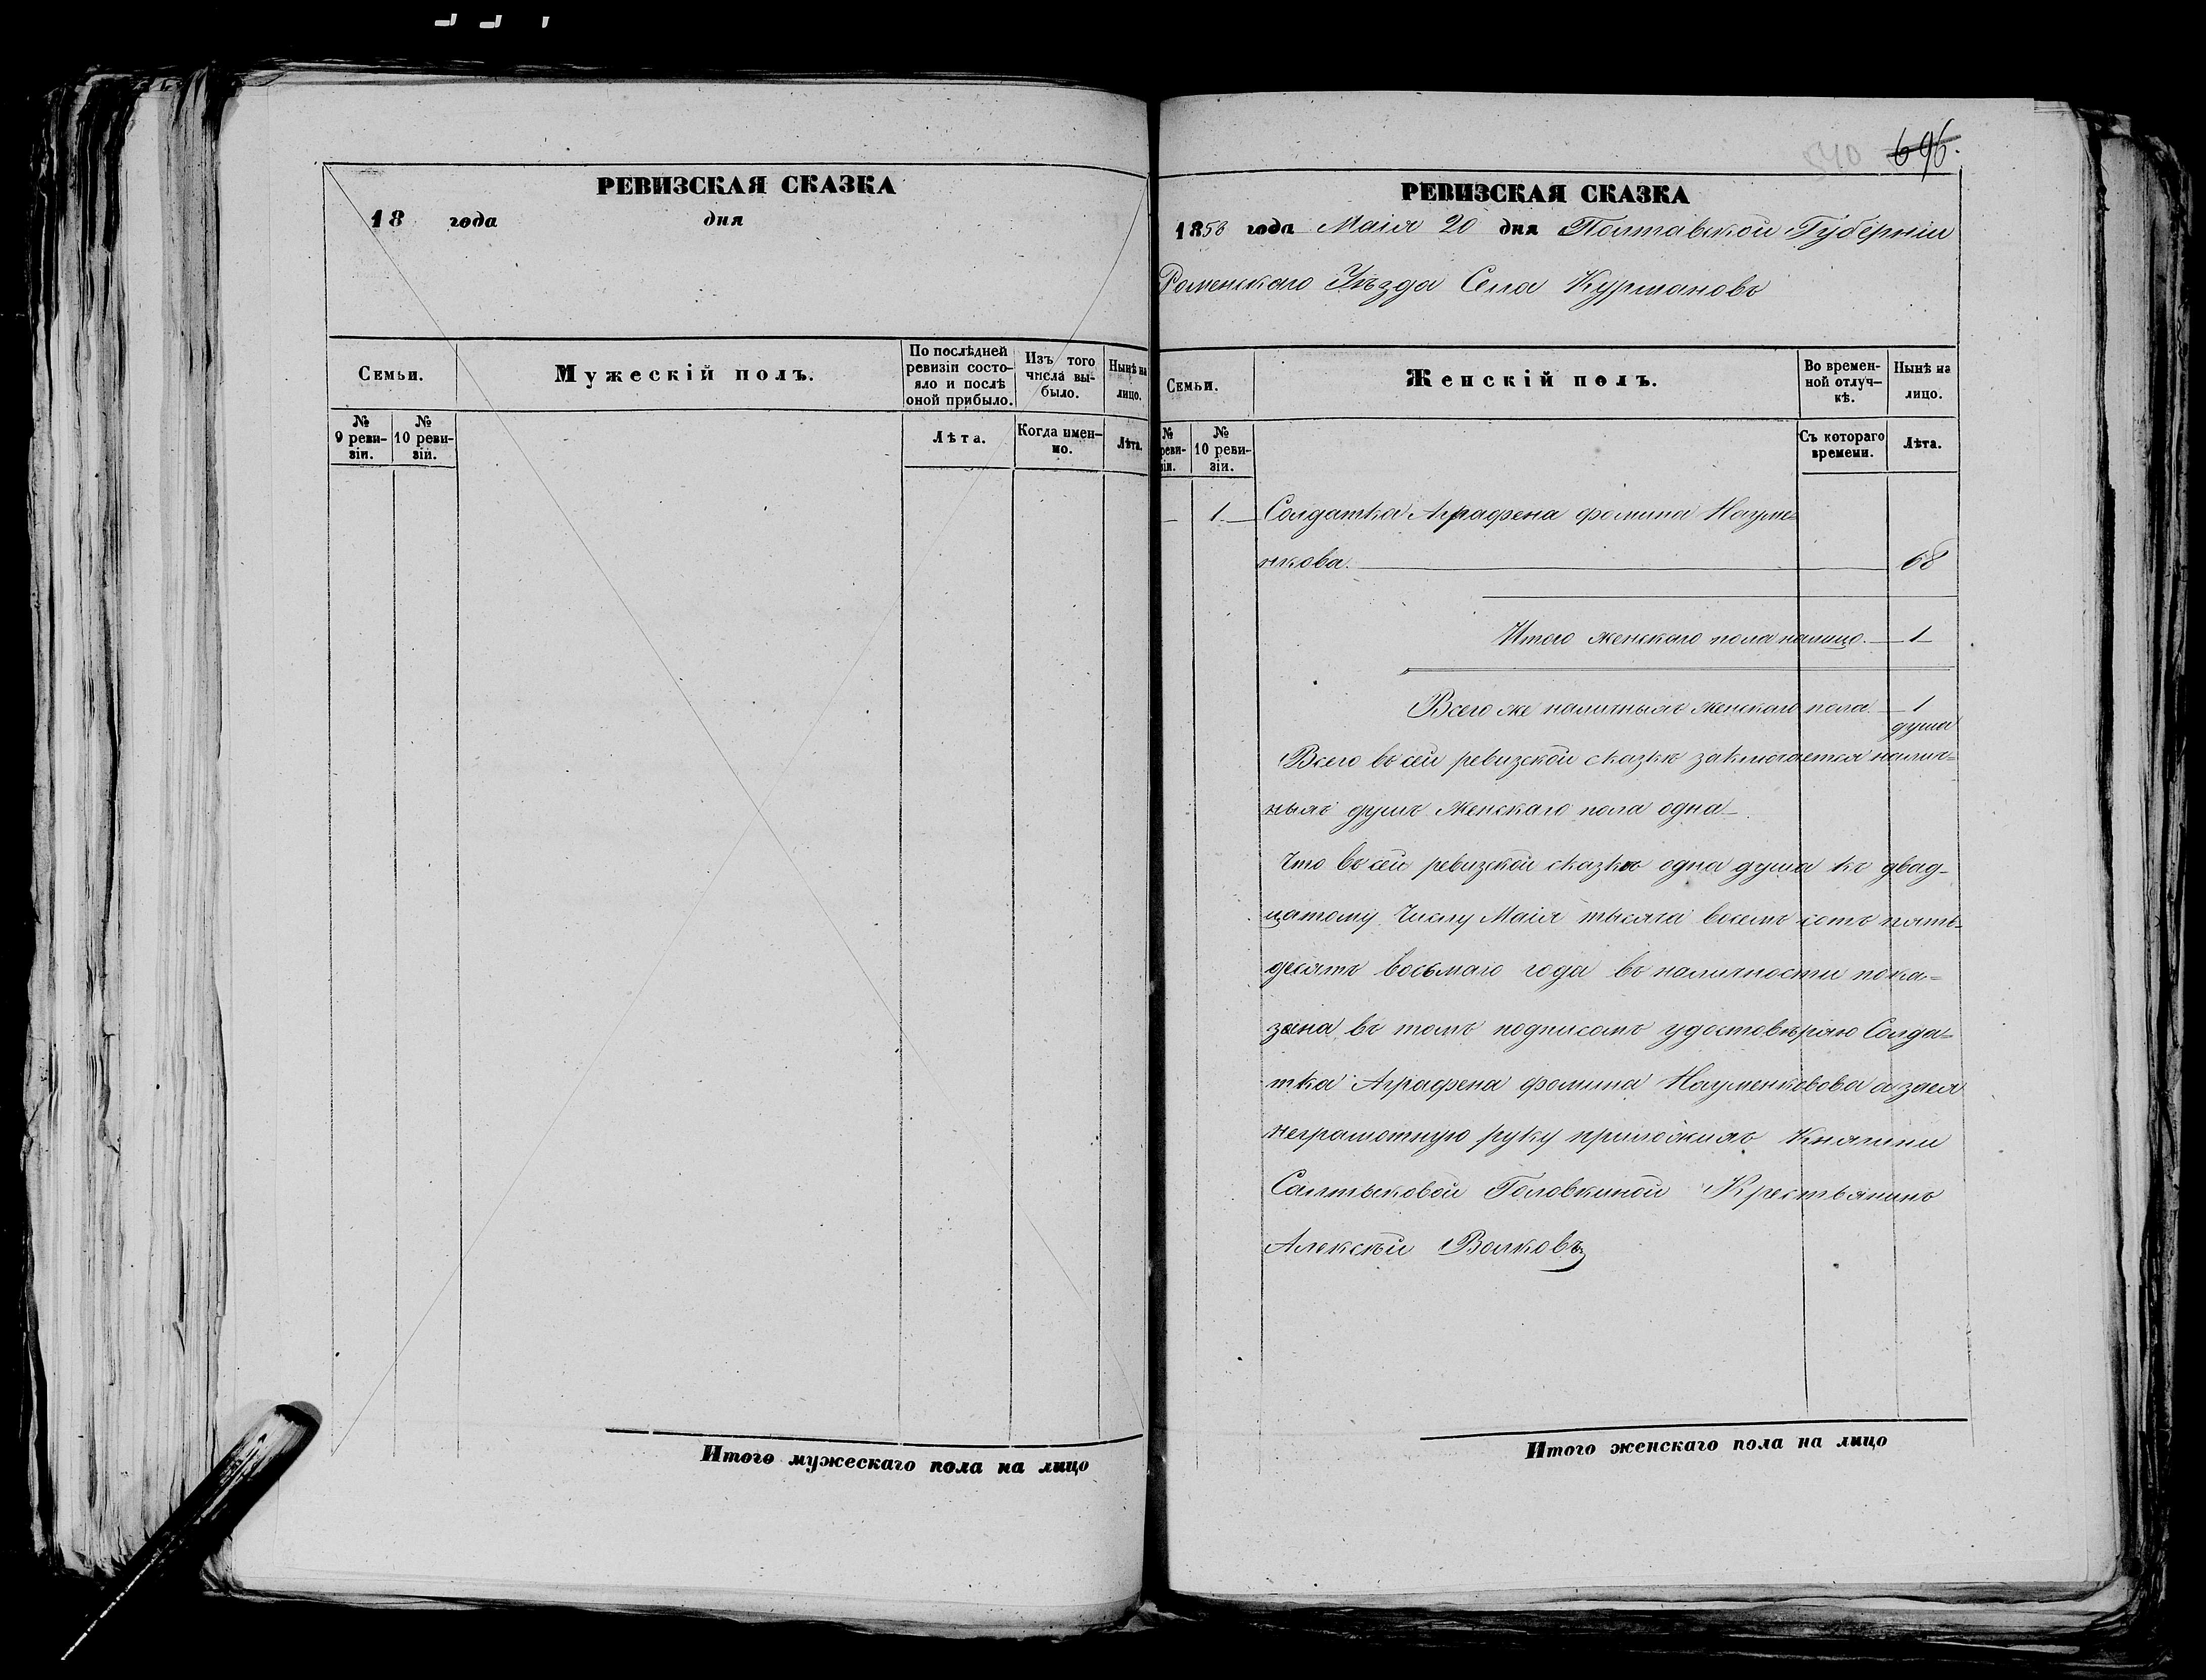 РЕВИЗСКАЯ СКАЗКА
18 года дня
Семьи.
Мужескій полъ.
По послѣдней ревизіи состо-
яло и послѣ
оной прибыло.
Изъ того
числа вы-
было.
Нынѣ на
лицо.
№
9 реви-
зіи.
№
10 реви-
зіи.
Лѣта.
Когда имен-
но.
Лѣта.
Итого мужескаго пола на лицо
540 696.
РЕВИЗСКАЯ СКАЗКА
1858 года Маія 20 дня Полтавской Губерніи
Роменскаго Уѣзда Села Курмановъ
Семьи.
Женскій полъ.
Во времен-
ной отлуч-
кѣ.
Нынѣ на
лицо.
№
реви-
зіи.
№
10 реви-
зіи.
Съ котораго
времени.
Лѣта.
1. Солдатка Аграфена Фомина Науме=
нкова. 68
Итого женскаго пола налицо. 1
Всего же наличныхъ женскаго пола 1
душа
Всего въ сей ревизской сказкѣ заключается налич=
ныхъ душъ женскаго пола одна
Что въ сей ревизской сказкѣ одна душа къ двад-
цатому числу Маія тысяча восемъ сотъ пять-
десятъ восьмаго года въ наличности пока=
зана въ томъ подписомъ удостовѣряю Солда=
тка Аграфена Фомина Науменковова а заея
неграмотную руку приложилъ Княгини
Салтыковой Головкиной Крестьянинъ
Алексѣй Волковъ
Итого женскаго пола на лицо